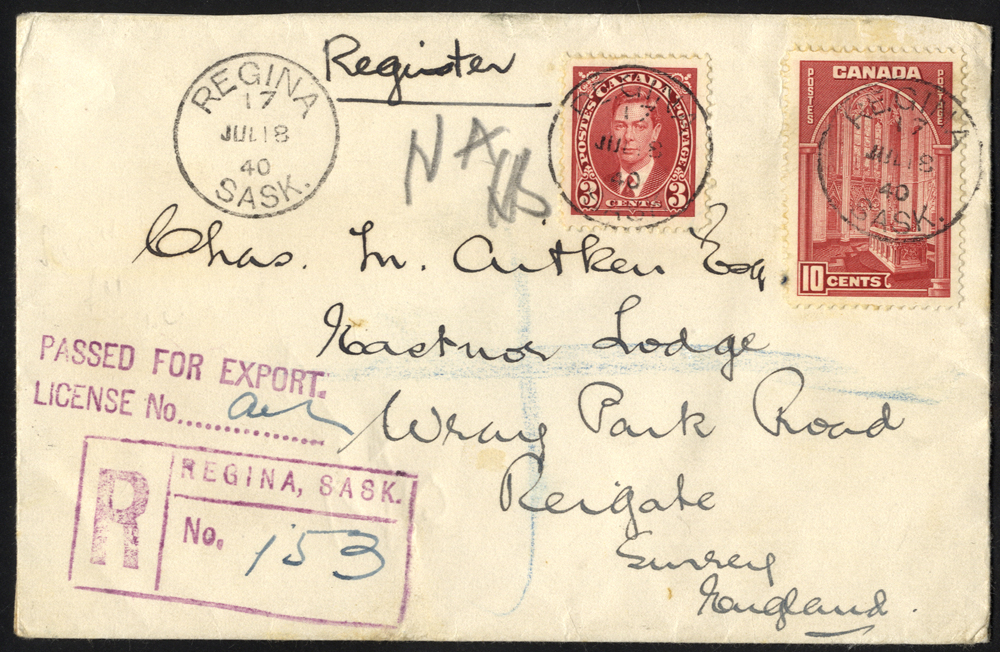 Register
REGINA
17
JUL 18
40
SASK.
N A
POSTES CANADA POSTAGE
3 CENTS 3
REGINA
17
JUL 18
40
SASK.
CANADA
POSTES
POSTAGE
10 CENTS
REGINA
17
JUL 18
40
SASK.
Chas. M. Aitken Esq
Eastnor Lodge
Wray Park Road
Reigate
Surrey
England.
PASSED FOR EXPORT.
LICENSE No.
R
REGINA, SASK.
No. 153